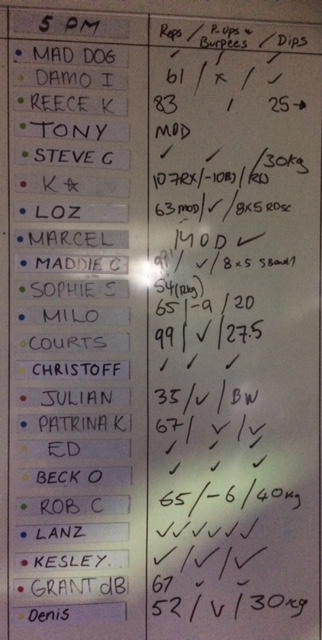 5 PM Reps / P-Ups + Burpees / Dips
MAD DOG ✓ / ✓
DAMO I 61 / x / ✓
REECE K 83 / 25→
TONY MOD
STEVE G ✓ ✓ /30kg
K☆ 107RX/-10BJ/RD
LOZ 63 MOD/✓/8x5 RDSC
MARCEL MOD ✓
MADDIE C 99/✓/8x5
SOPHIE S 54
MILO 65/-9/20
COURTS 99/✓/27.5
CHRISTOFF ✓ ✓ ✓
JULIAN 35/✓/BW
PATRINA K 67/✓/✓
ED ✓ ✓ ✓
BECK O ✓ ✓ ✓
ROB C 65/-6/40kg
LANZ ✓✓✓✓✓
KESLEY. ✓/✓/✓
GRANT dB 67 ✓ ✓
Denis 52/✓/30kg